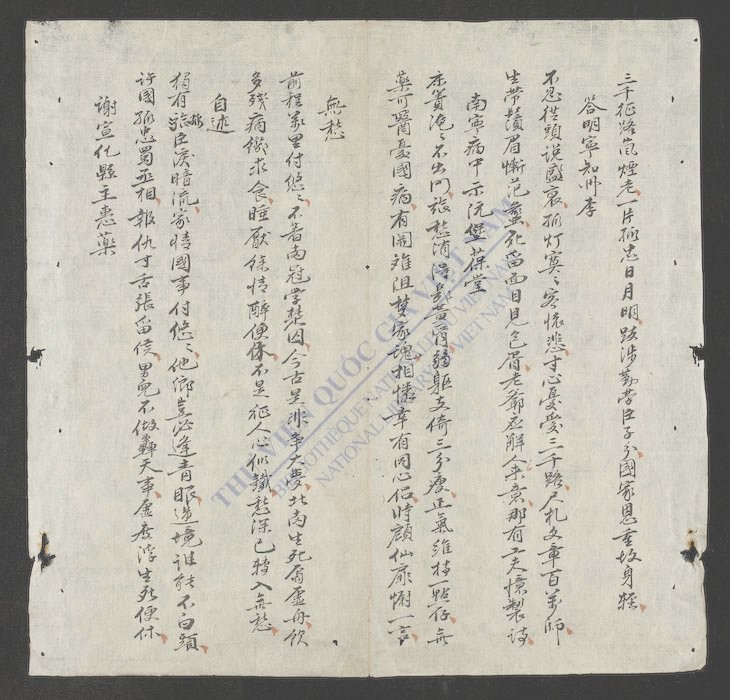 三千征路嵐煙老一片孤忠日月明跋涉勤勞臣子分國家恩重故身輕
答明寧知州李
不忍從頭說盛衰孤灯寞〻客懷悲寸心憂愛三千路尺札文章百萬師
生帶鬚眉慚范蠡死留面目見包胥老爺應解人來意那有工夫憶製詩
南寧病中示阮堡葆堂
床簀淹〻不出門張愁消得幾黃昏弱軀支倚三分瘦正氣維持一點存無
藥可醫憂國病有關難阻夢家魂相憐幸有同心侶時顧仙扉慰一言
無愁
前程萬里付悠〻不着南冠學楚囚今古是非爭大夢北南生死屬虛舟飲
多殘病纔求食睡厭餘情醉便休不是征人心似鐵愁深已轉入無愁
自述
獨有孤臣淚暗流家情國事付悠〻他鄉豈必逢青眼邊境誰能不白頭
許國孤忠蜀丞相報仇寸舌張留侯男兒不做轟天事虛度浮生死便休
謝宣化縣主惠藥
THƯ VIỆN QUỐC GIA VIỆT NAM
BIBLIOTHÈQUE NATIONALE DU VIETNAM
NATIONAL LIBRARY OF VIETNAM